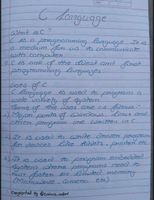 C Language
What is C?
C is a programming language. It is
a medium for us to communicate
with computer.
C is one of the oldest and finest
programming languages.
Uses of C
C language is used to program a
wide variety of system.
Some of the uses are as follows:
Major parts of windows, Linux and
others program are written in C
It is used to write driver program
for devices like tablets, printer etc
It is used to program embedded
system where programs need to
run faster in limited memory
(Microwave, camera etc)